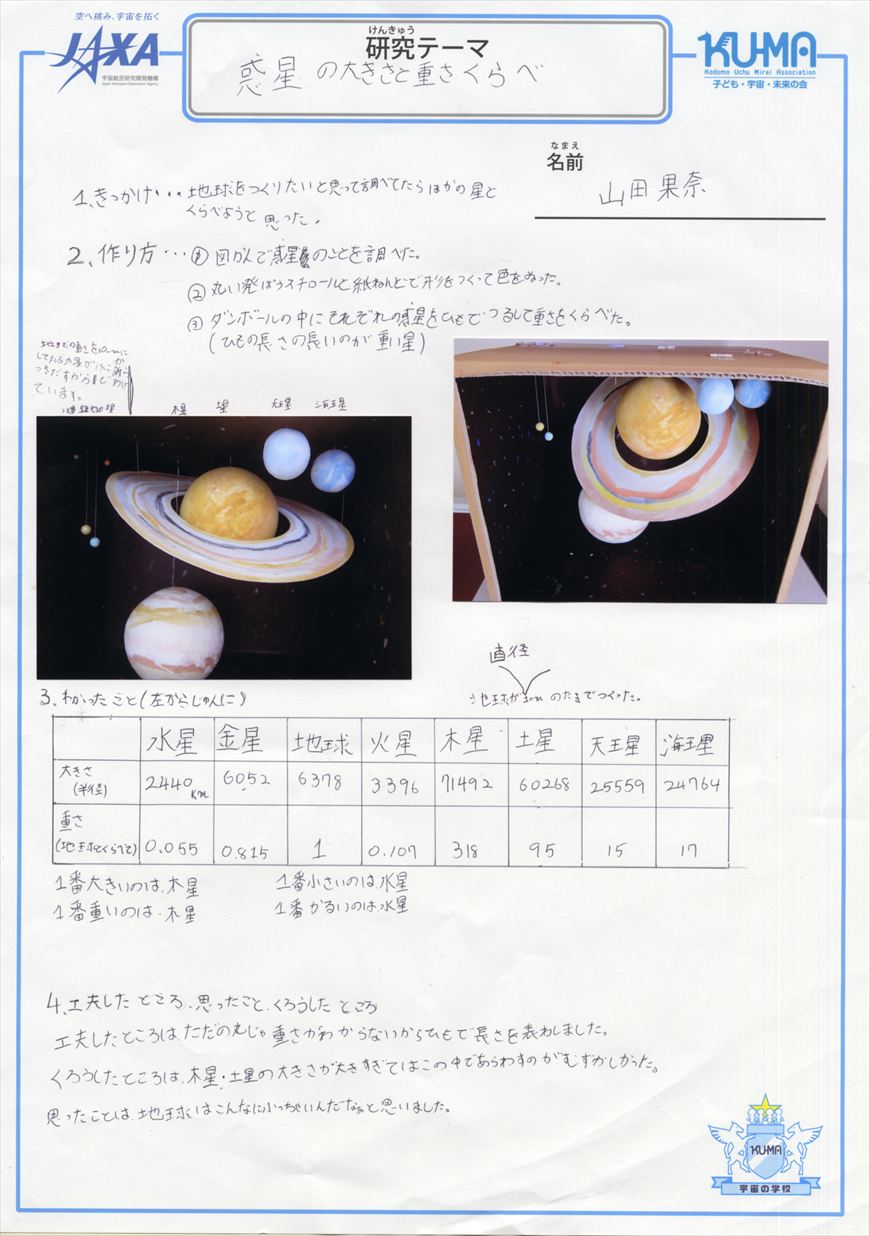 空へ挑み、宇宙を拓く
JAXA
宇宙航空研究開発機構
Japan Aerospace Exploration Agency
けんきゅう
研究テーマ
惑星の大きさと重さくらべ
KU-MA
Kodomo Uchu Mirai Association
子ども・宇宙・未来の会
なまえ
名前
山田果奈
1、きっかけ・・・地球をつくりたいと思って調べてたらほかの星と
くらべようと思った。
2、作り方・・・① 図かんで惑星のことを調べた。
② 丸い発ぽうスチロールと紙ねんどで形をつくって色をぬった。
③ ダンボールの中にそれぞれの惑星をひもでつるして重さをくらべた。
(ひもの長さの長いのが重い星)
ています。
木星 土星 天王星 海王星
直径
地球が1cmのたまでつくった。
3、わかったこと(左からじゅんに)
水星 金星 地球 火星 木星 土星 天王星 海王星
大きさ(半径) 2440km 6052 6378 3396 71492 60268 25559 24764
重さ(地球とくらべて) 0.055 0.815 1 0.107 318 95 15 17
1番大きいのは、木星 1番小さいのは、水星
1番重いのは、木星 1番かるいのは、水星
4、工夫したところ、思ったこと、くろうしたところ
工夫したところは、ただの丸じゃ重さがわからないからひもで長さを表わしました。
くろうしたところは、木星・土星の大きさが大きすぎてはこの中であらわすのがむずかしかった。
思ったことは、地球はこんなにふっちゃいんだなぁと思いました。
KU-MA
宇宙の学校